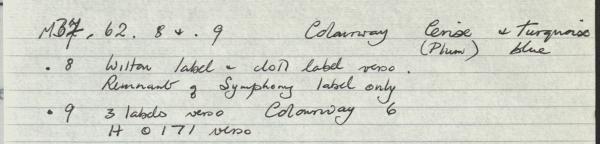 MB7. 62. 8 & .9 Colourway Cerise & Turquoise
(Plum) blue
. 8 Wilton label & cloth label verso.
Remnant of Symphony label only
. 9 3 labels verso Colourway 6
H 0171 verso